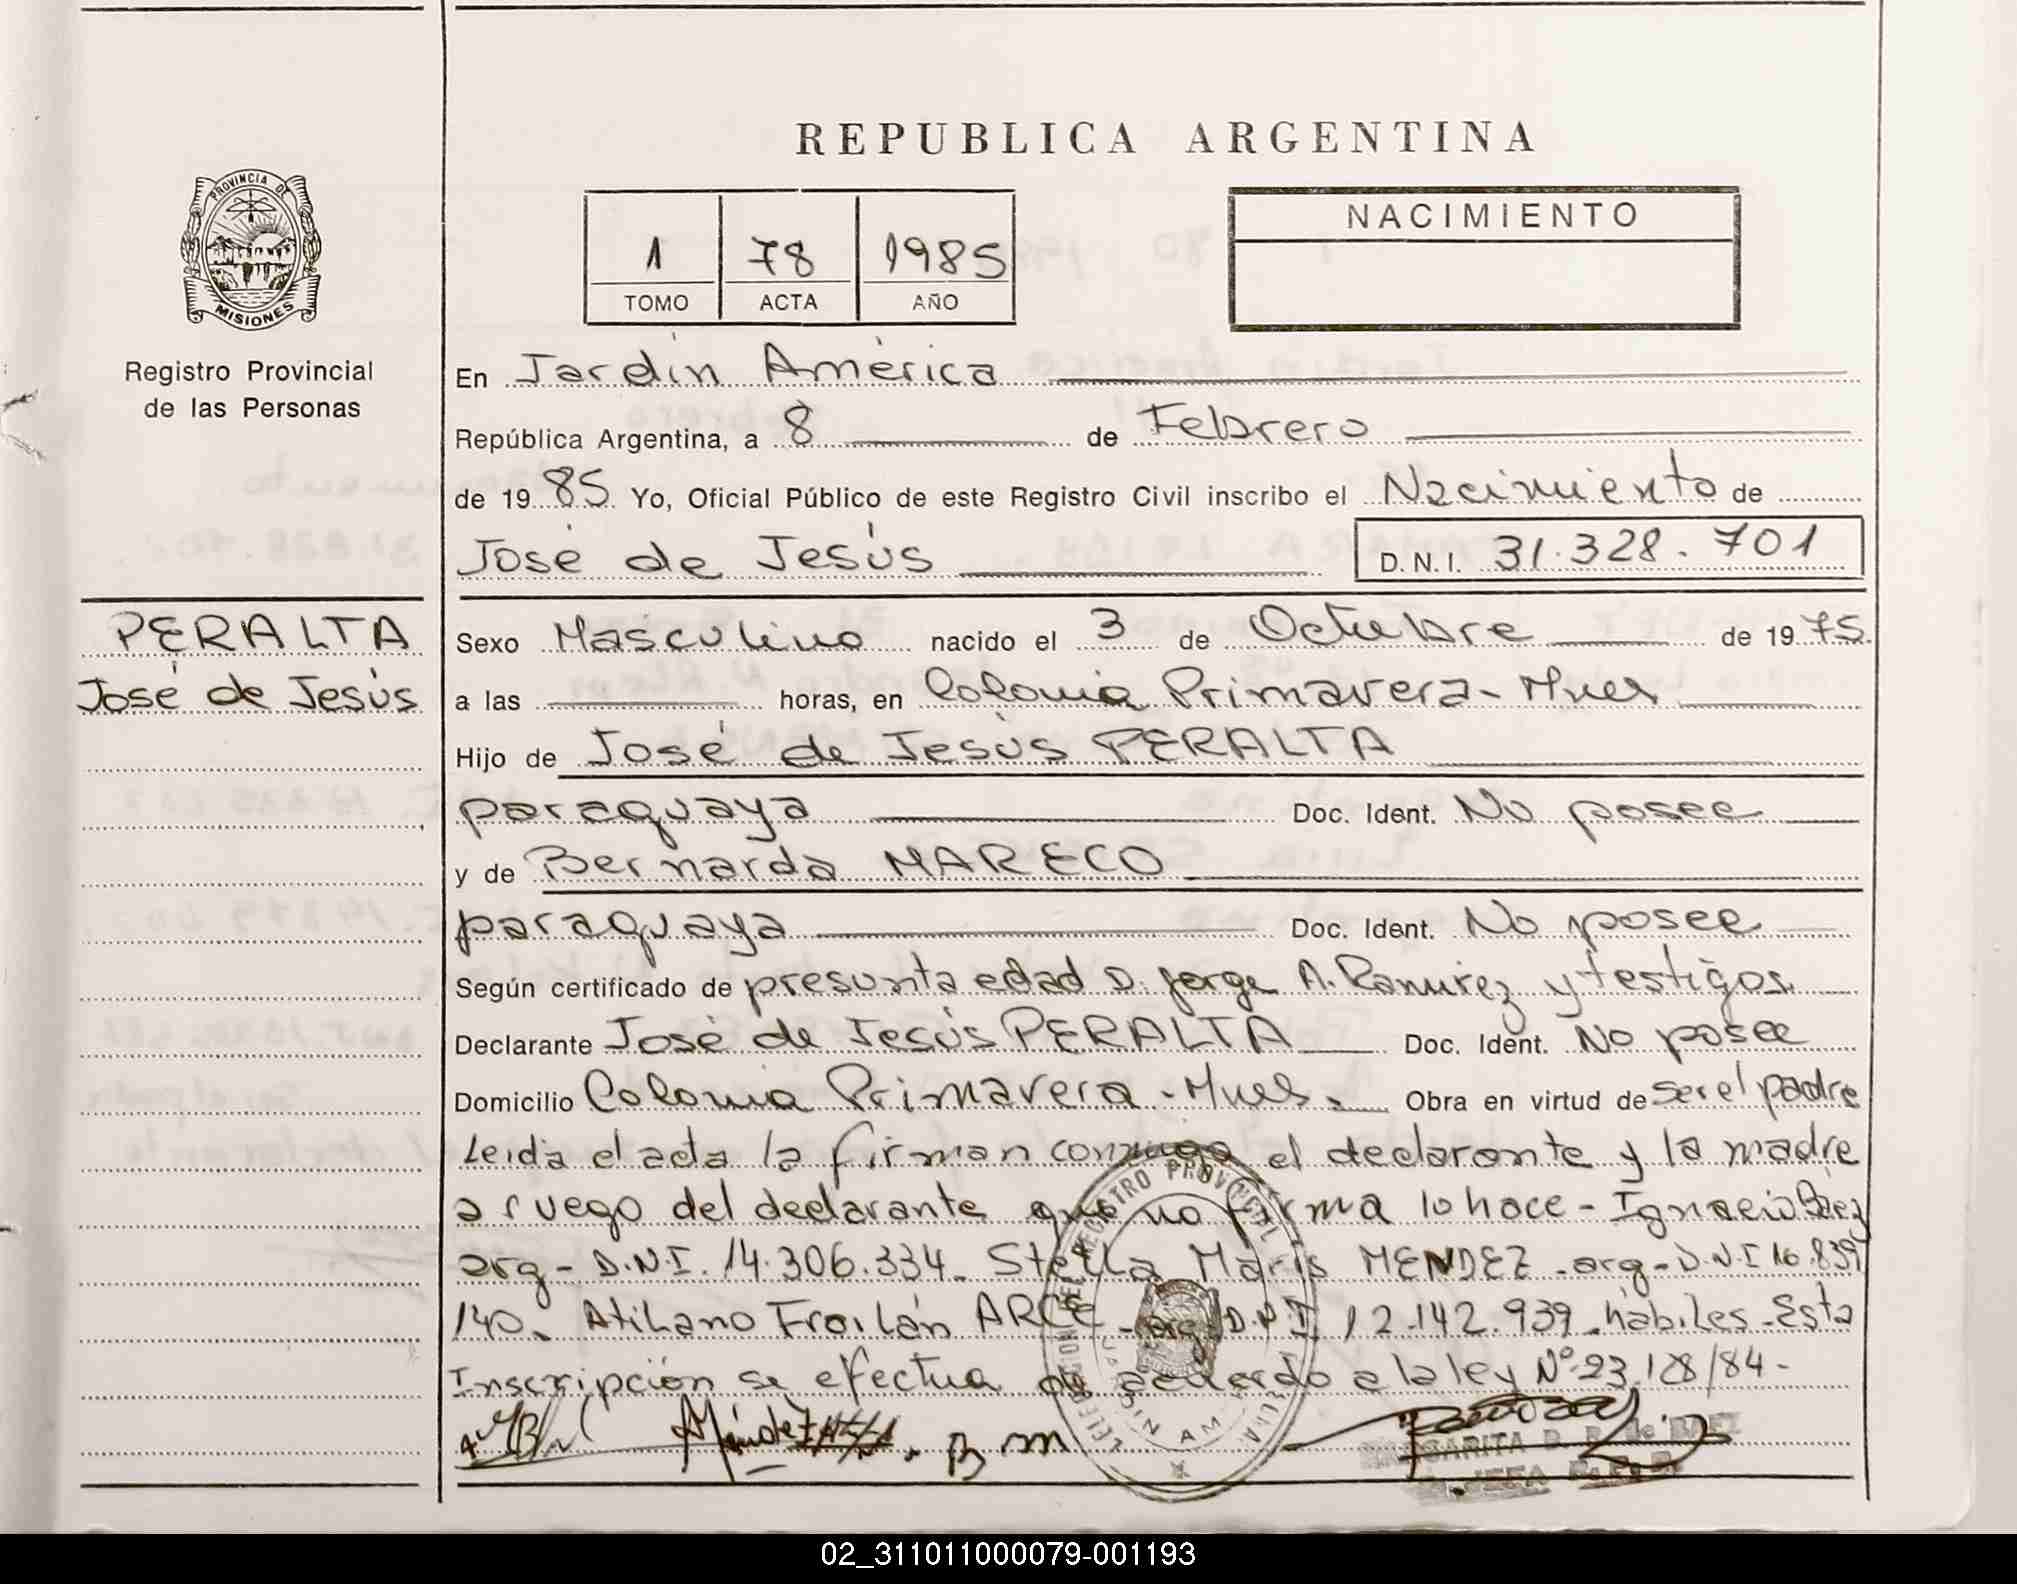 REPUBLICA ARGENTINA
PROVINCIA DE
MISIONES
Registro Provincial
de las Personas
1 78 1985
TOMO ACTA AÑO
NACIMIENTO
En Jardín América
República Argentina, a 8 de Febrero
de 1985 Yo, Oficial Público de este Registro Civil inscribo el Nacimiento de
José de Jesús D.N.I. 31.328.701
PERALTA
José de Jesús
Sexo Masculino nacido el 3 de Octubre de 1975.
a las horas, en Colonia Primavera - Mnes
Hijo de José de Jesús PERALTA
paraguaya Doc. Ident. No posee
y de Bernarda MARECO
paraguaya Doc. Ident. No posee
Según certificado de presunta edad D. Jorge A. Ramírez y testigos.
Declarante José de Jesús PERALTA Doc. Ident. No posee
Domicilio Colonia Primavera - Mnes. Obra en virtud de ser el padre
Leida el acta la firman conmigo el declarante y la madre
a ruego del declarante que no firma lo hace - Ignacio Báez
arg - D.N.I. 14.306.334. Stella Maris MENDEZ - arg - D.N.I 16.839
140. Atilano Froilán ARCE - arg - D.N.I. 12.142.939 - hábiles - Esta
Inscripción se efectua de acuerdo a la ley Nº 23.128/84 -
B m
02_311011000079-001193